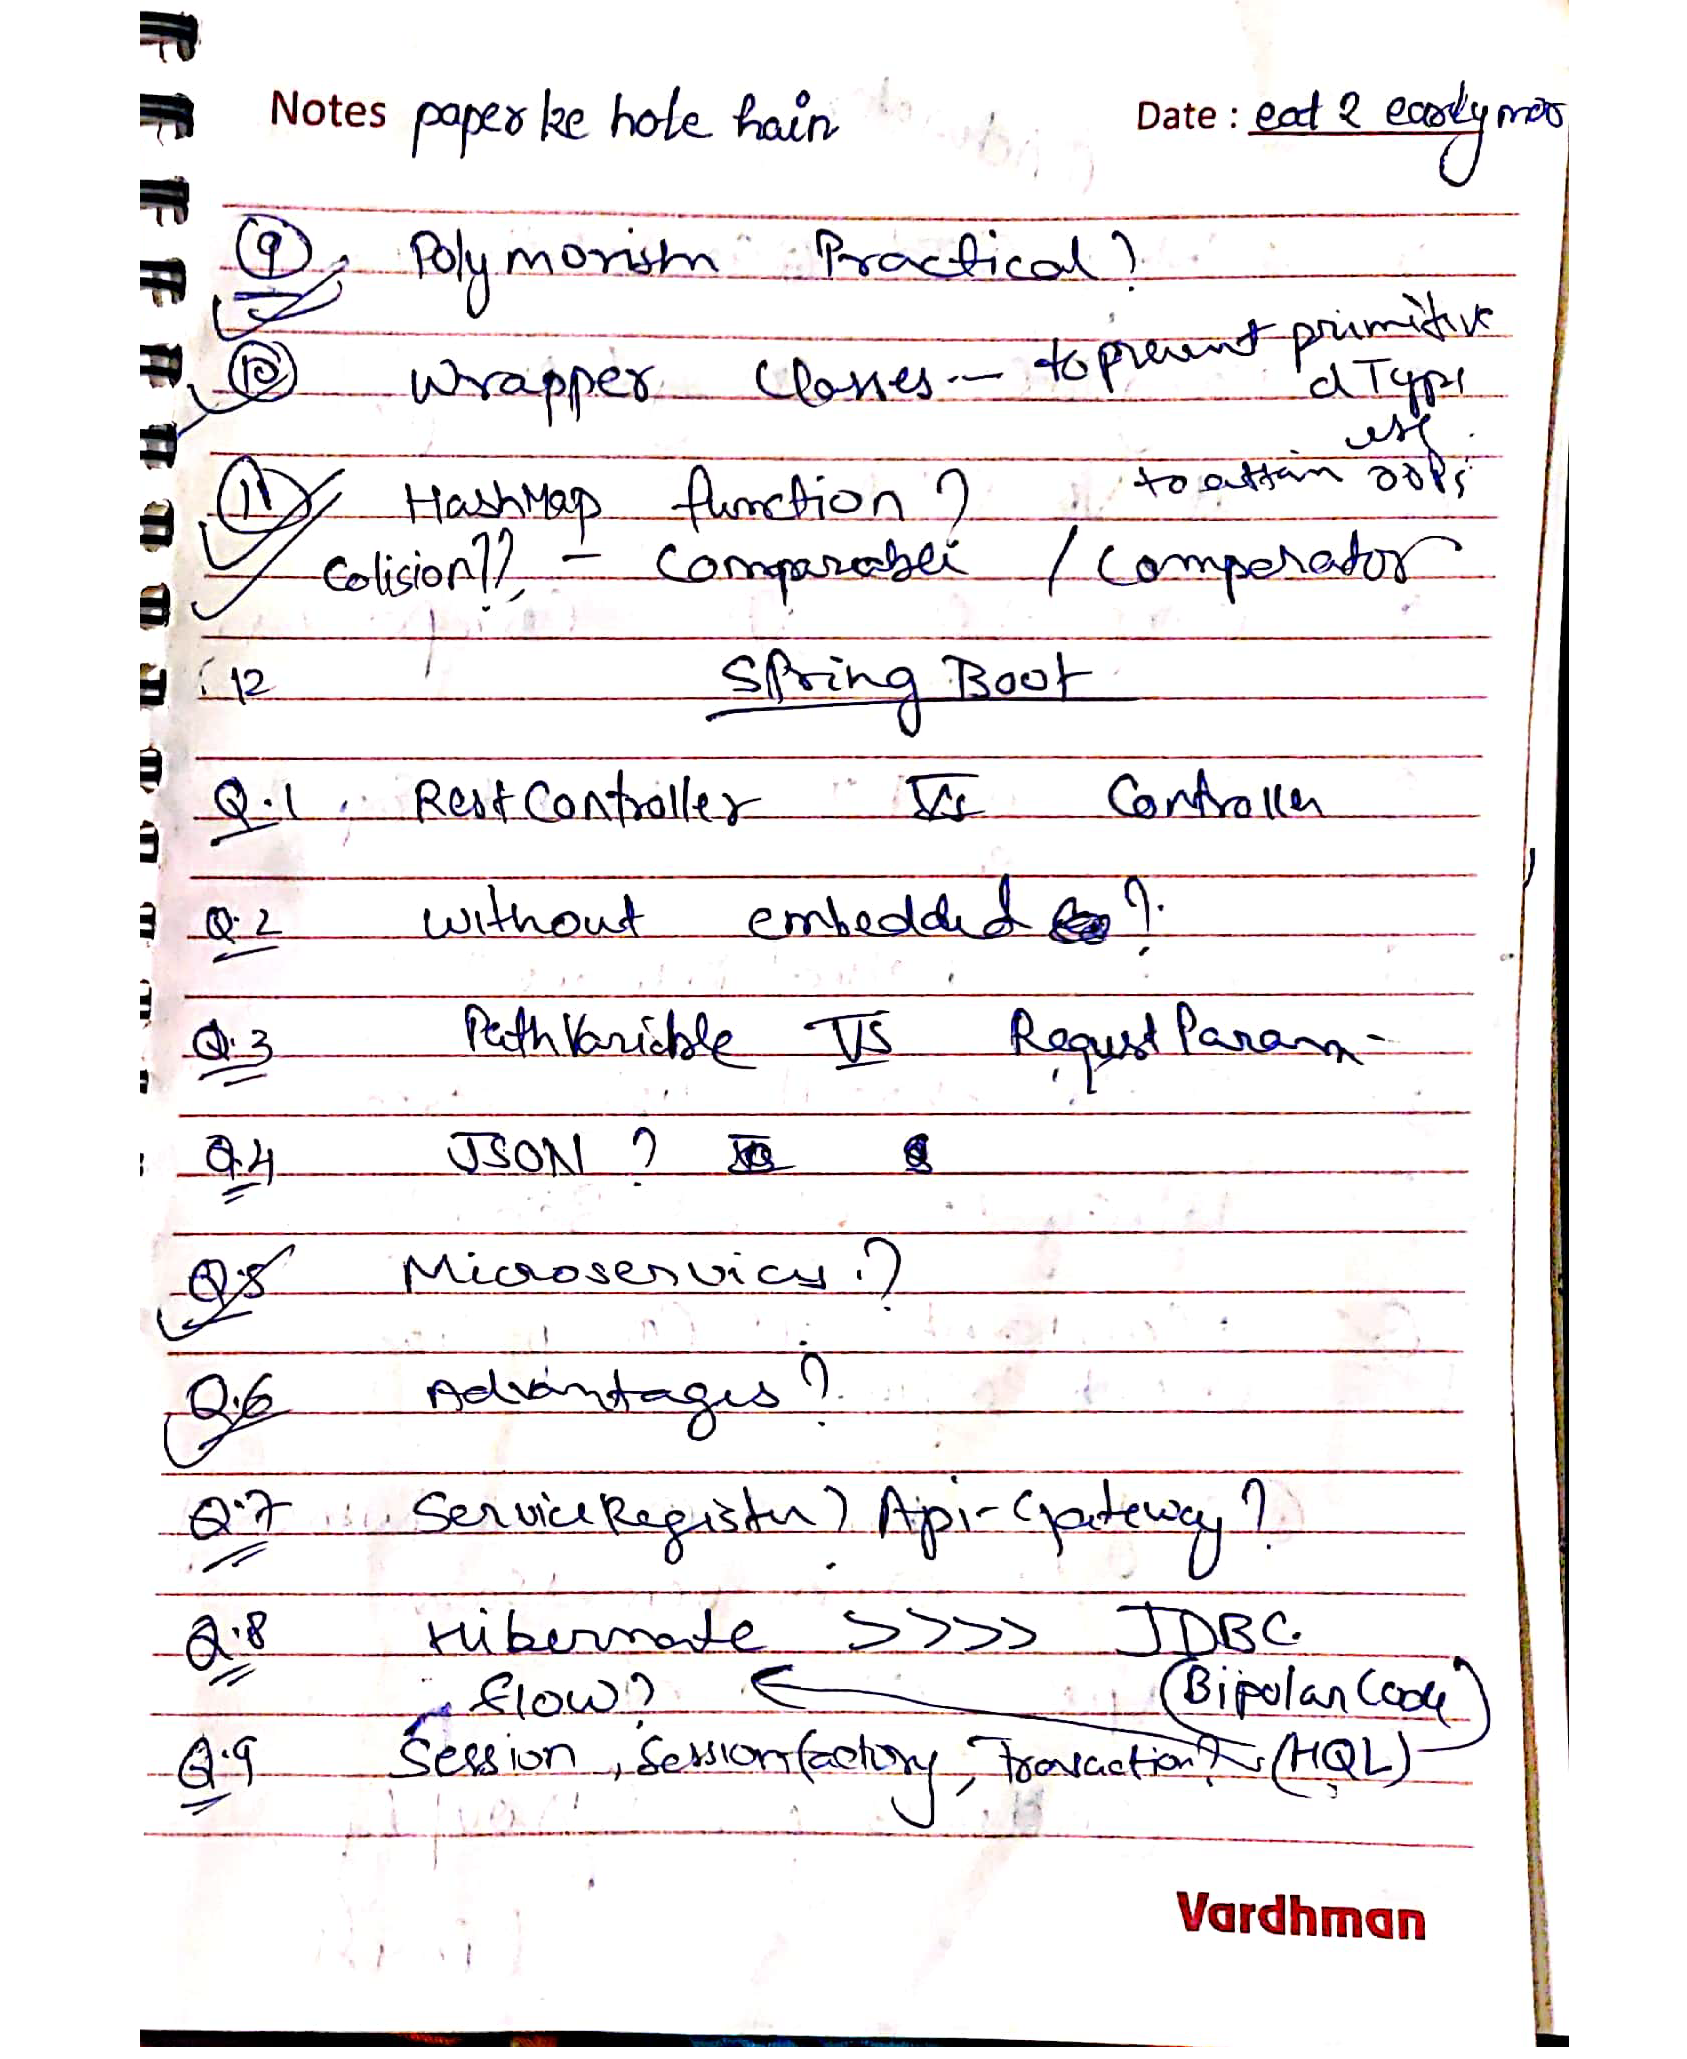 Notes paper ke hote hain Date : eat 2 early mor
9 Polymorism Practical?
10 Wrapper Classes - to prevent primitive
d Type
use
to attain OOPs
11 HashMap function?
Colision?? - Comparable / Comperator
12 Spring Boot
Q.1 RestController Vs Controller
Q.2 without embedded ?
Q.3 PathVariable VS RequstParam -
Q.4 JSON ?
Q.5 Microservices ?
Q.6 Advantages ?
Q.7 ServiceRegister? Api-Gateway?
Q.8 Hibernate >>>> JDBC
flow? (Bipolar Code)
Q.9 Session, Sessionfactory, Transaction? (HQL)
Vardhman